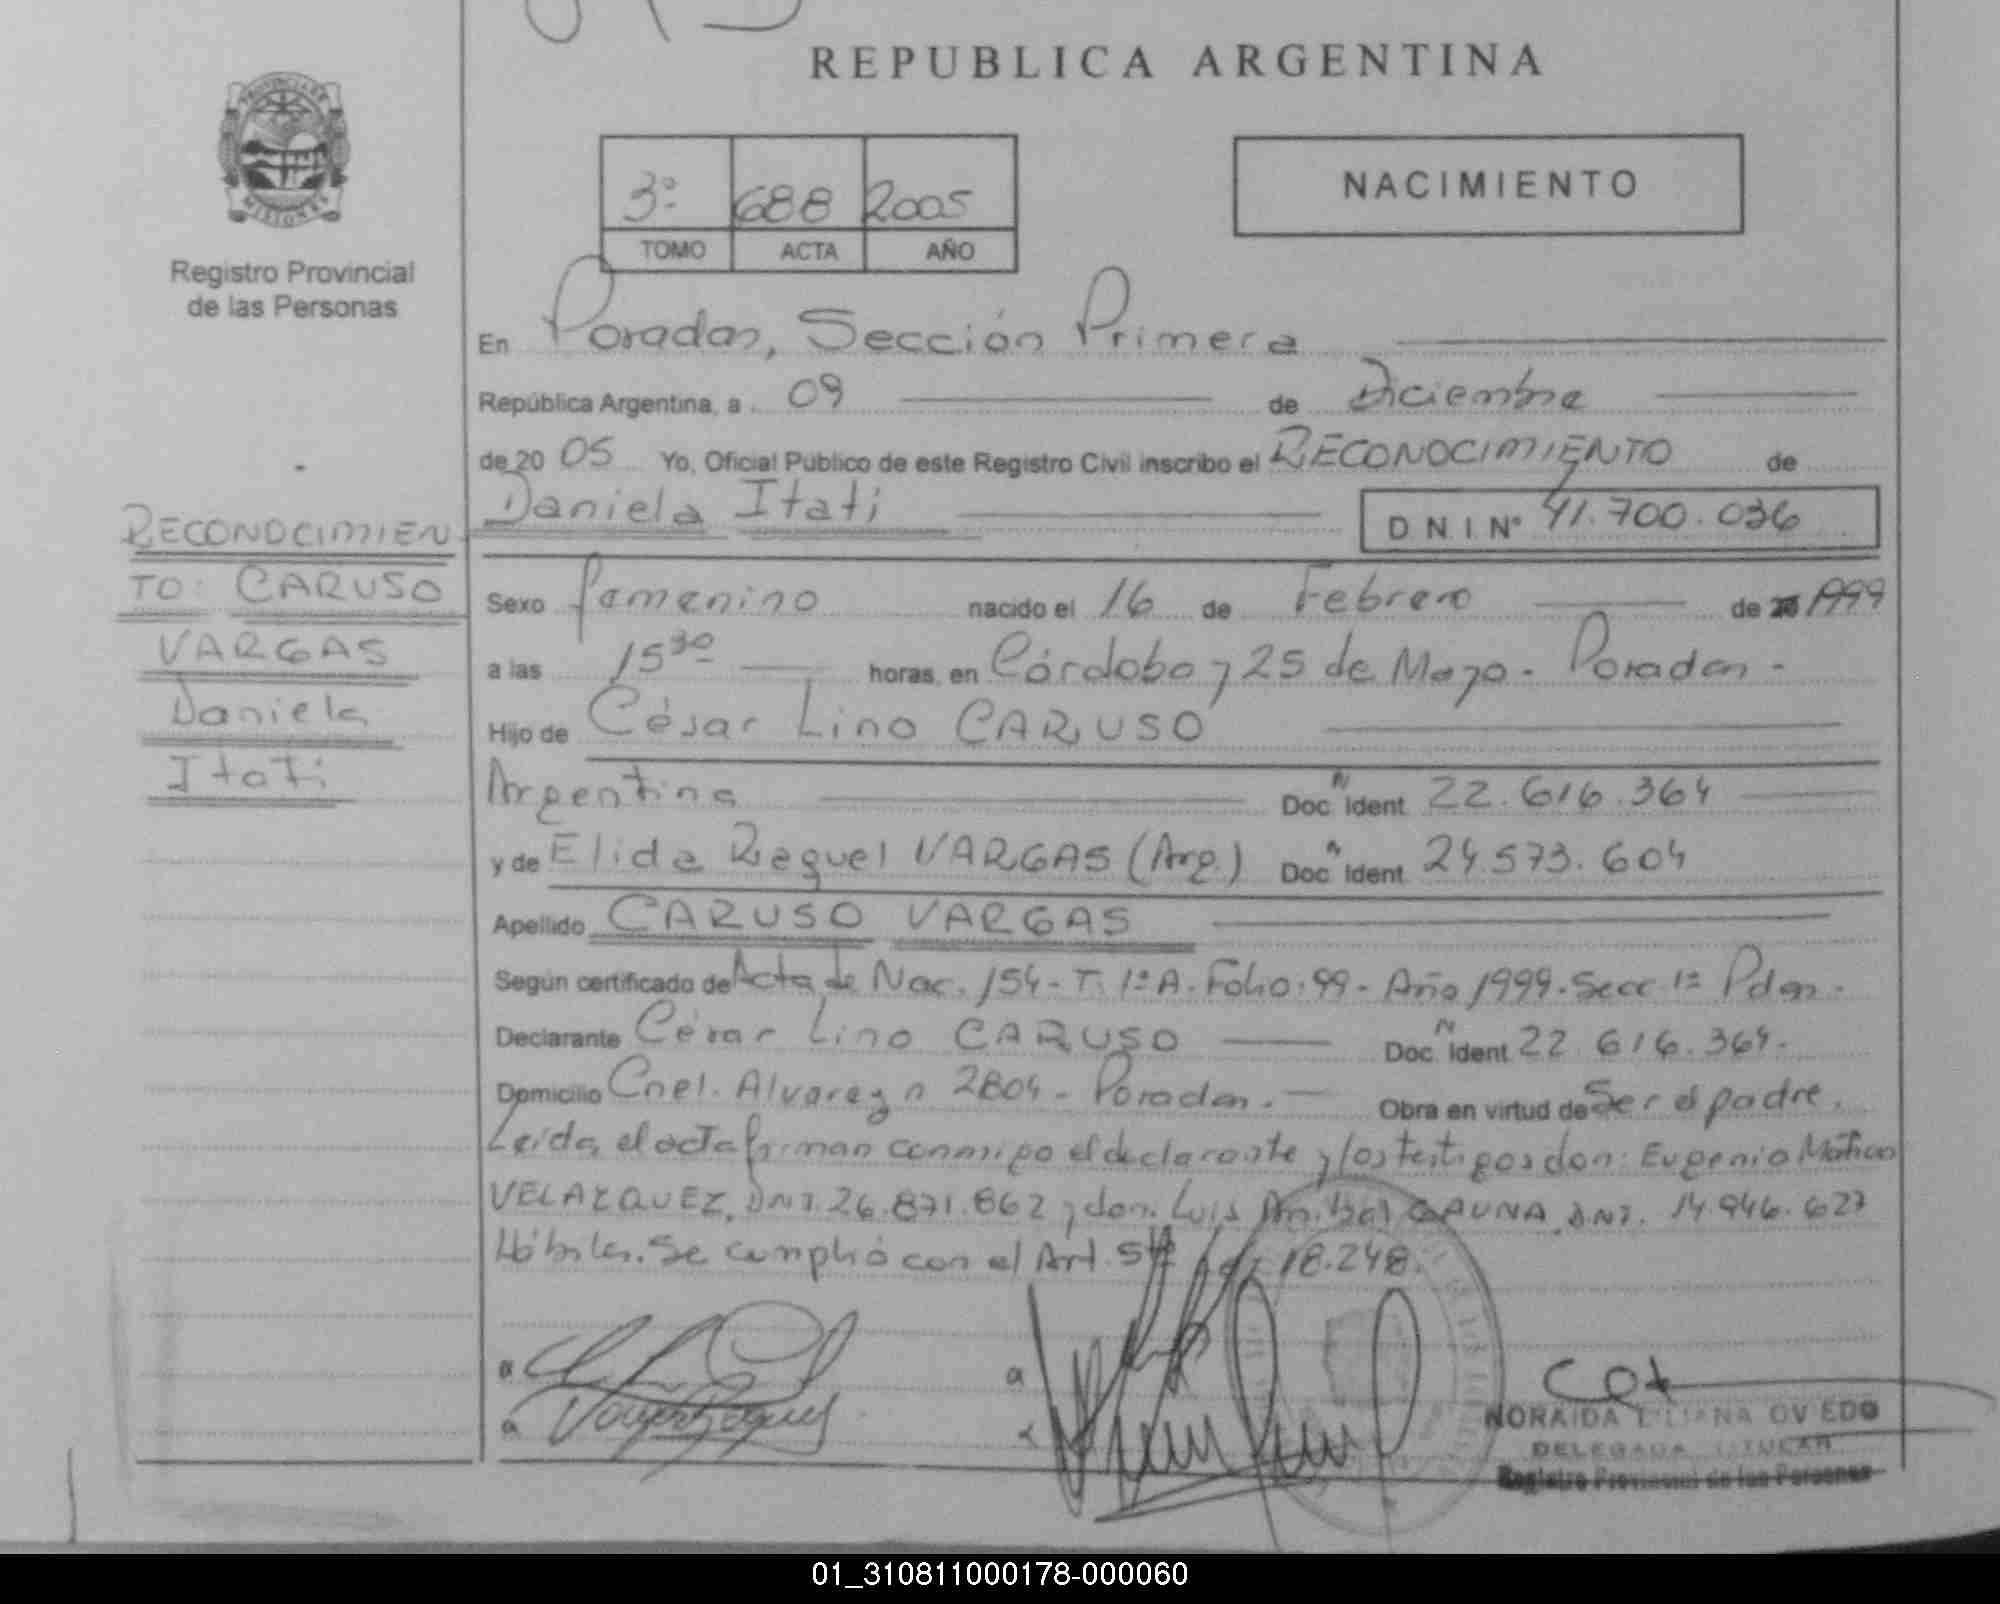 REPUBLICA ARGENTINA
PROVINCIA DE
MISIONES
Registro Provincial
de las Personas
3º 688 2005
TOMO ACTA AÑO
NACIMIENTO
En Posadas, Sección Primera
República Argentina, a 09 de Diciembre
de 20 05 Yo, Oficial Público de este Registro Civil inscribo el RECONOCIMIENTO de
Daniela Itati D N I Nº 41.700.036
RECONOCIMIEN
TO: CARUSO
VARGAS
Daniela
Itati
Sexo femenino nacido el 16 de Febrero de 1999
a las 15 30 horas, en Córdoba y 25 de Mayo - Posadas -
Hijo de César Lino CARUSO
Argentina Doc. Ident. 22.616.364
y de Elida Raquel VARGAS (Arg.) Doc. Ident. 24.573.604
Apellido CARUSO VARGAS
Según certificado de Acta de Nac. 154 - T. 1º A - Folio: 99 - Año 1999 - Secc 1ª Pdas.
Declarante César Lino CARUSO Doc. Ident. 22.616.364.
Domicilio Cnel. Alvarez n 2804 - Posadas. - Obra en virtud de Ser el padre.
Leída el acta firman conmigo el declarante y los testigos don: Eugenio Matias
VELAZQUEZ, DNI. 26.871.862 y don. Luis Anibal GAUNA DNI. 14.946.627
Hábiles. Se cumplió con el Art. 5 18.248.
a a
a
NORAIDA LILIANA OVIEDO
DELEGADA TITULAR
Registro Provincial de las Personas
01_310811000178-000060